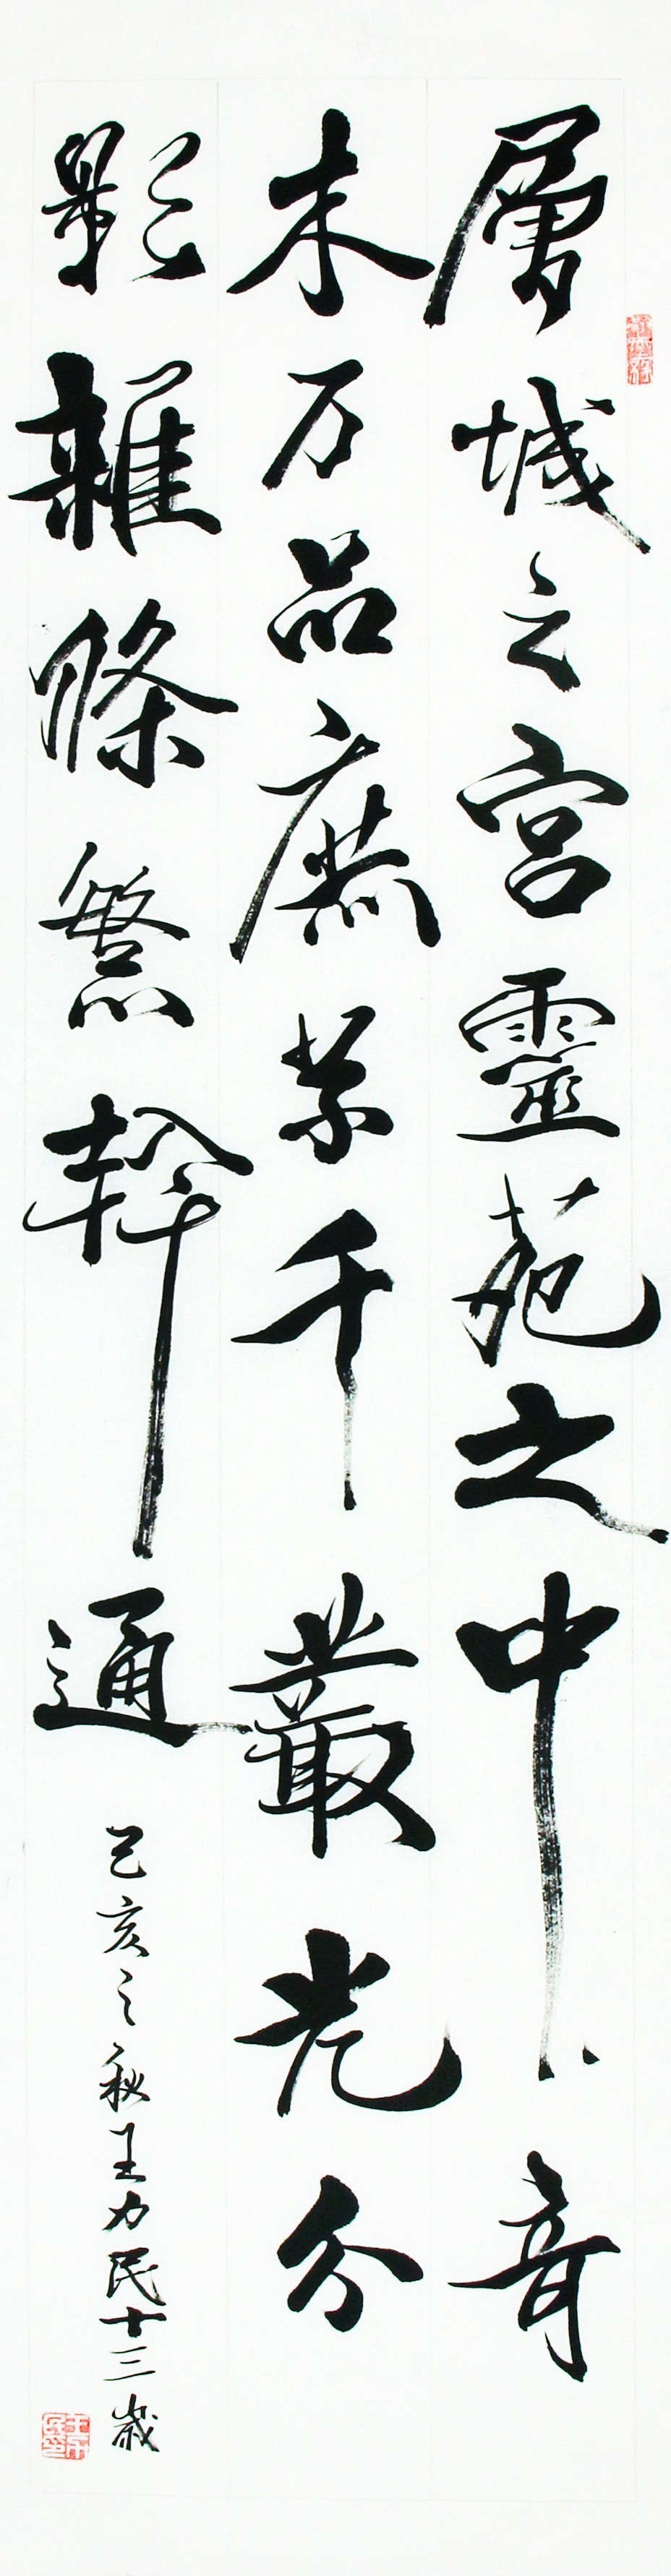 層城之宮靈苑之中奇
木万品庶草千叢光分
影雜條繁幹通
己亥之秋王力民十三歲